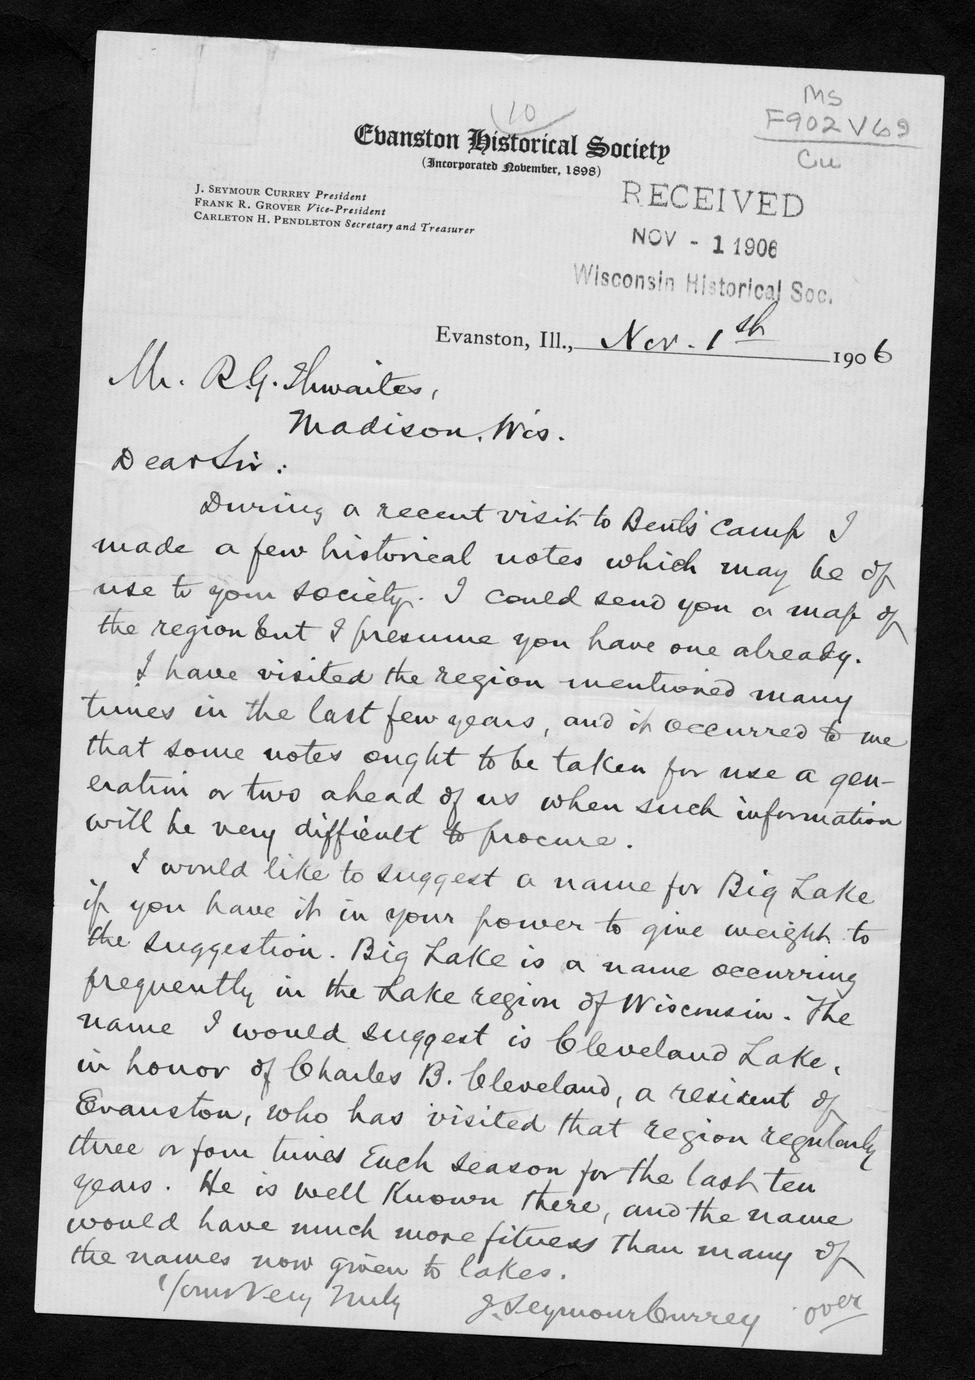 10
MS
F902V69
Cu
Evanston Historical Society
(Incorporated November, 1898)
J. SEYMOUR CURREY President
FRANK R. GROVER Vice-President
CARLETON H. PENDLETON Secretary and Treasurer
RECEIVED
NOV - 1 1906
Wisconsin Historical Soc.
Evanston, Ill., Nov. 1 1906
Mr. R.G. Thwaites,
Madison, Wis.
Dear Sir:
During a recent visit to Bent's Camp I
made a few historical notes which may be of
use to your society. I could send you a map of
the region but I presume you have one already.
I have visited the region mentioned many
times in the last few years, and it occurred to me
that some notes ought to be taken for use a gen-
eration or two ahead of us when such information
will be very difficult to procure.
I would like to suggest a name for Big Lake
if you have it in your power to give weight to
the suggestion. Big Lake is a name occurring
frequently in the Lake region of Wisconsin. The
name I would suggest is Cleveland Lake,
in honor of Charles B. Cleveland, a resident of
Evanston, who has visited that region regularly
three or four times Each season for the last ten
years. He is well Known there, and the name
would have much more fitness than many of
the names now given to lakes.
Yours Very Truly
J. Seymour Currey over